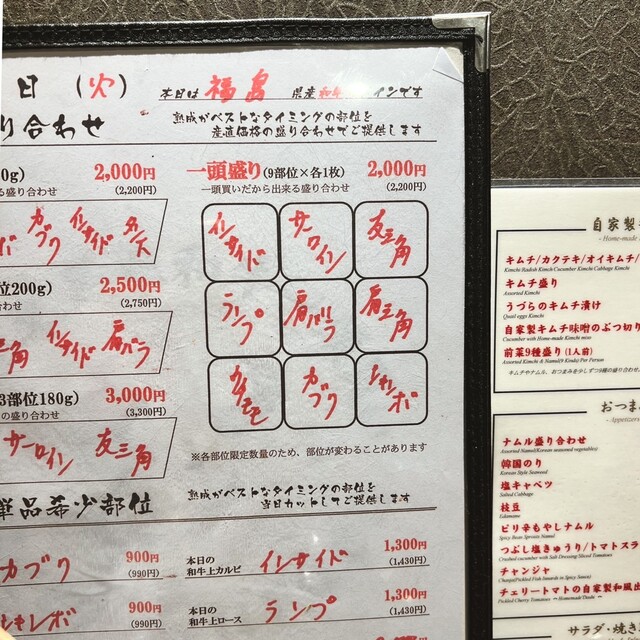 日 (火) 本日は 福島 県産和牛メインです
り合わせ
熟成がベストなタイミングの部位を
産直価格の盛り合わせでご提供します
0g) 2,000円
る盛り合わせ (2,200円)
ボ カブク インサイド カメ
位200g) 2,500円
わせ (2,750円)
角 インサイド 肩バラ
3部位180g) 3,000円
の盛り合わせ (3,300円)
サーロイン 友三角
一頭盛り(9部位×各1枚) 2,000円
一頭買いだから出来る盛り合わせ (2,200円)
インサイド サーロイン 友三角
ランプ 肩バラ 肩三角
ウチモモ カブク シキンボ
※各部位限定数量のため、部位が変わることがあります
単品希少部位
熟成がベストなタイミングの部位を
当日カットしてご提供します
カブク 900円
(990円)
本日の
和牛上カルビ インサイド 1,300円
(1,430円)
900円
(990円)
本日の
和牛上ロース ランプ 1,300円
(1,430円)
自家製キ
- Home-made
キムチ/カクテキ/オイキムチ/
Kimchi Radish Kimchi Cucumber Kimchi Cabbage Kimchi
キムチ盛り
Assorted Kimchi
うづらのキムチ漬け
Quail eggs Kimchi
自家製キムチ味噌のぶつ切り
Cucumber with Home-made Kimchi miso
前菜9種盛り (1人前)
Assorted Kimchi & Namul(9 Kinds) Per Person
キムチやナムル、おつまみを少しずつ9種の盛り合わせ。
おつま
- Appetizers
ナムル盛り合わせ
Assorted Namul(Korean seasoned vegetables)
韓国のり
Korean Style Seaweed
塩キャベツ
Salted Cabbage
枝豆
Edamame
ピリ辛もやしナムル
Spicy Bean Sprouts Namul
つぶし塩きゅうり/トマトスラ
Crushed cucumber with Salt Dressing/Sliced Tomatoes
チャンジャ
Changa(Pickled Fish Innards in Spicy Sauce)
チェリートマトの自家製和風出
Pickled Cherry Tomatoes ～Homemade Dashi～
サラダ・焼き